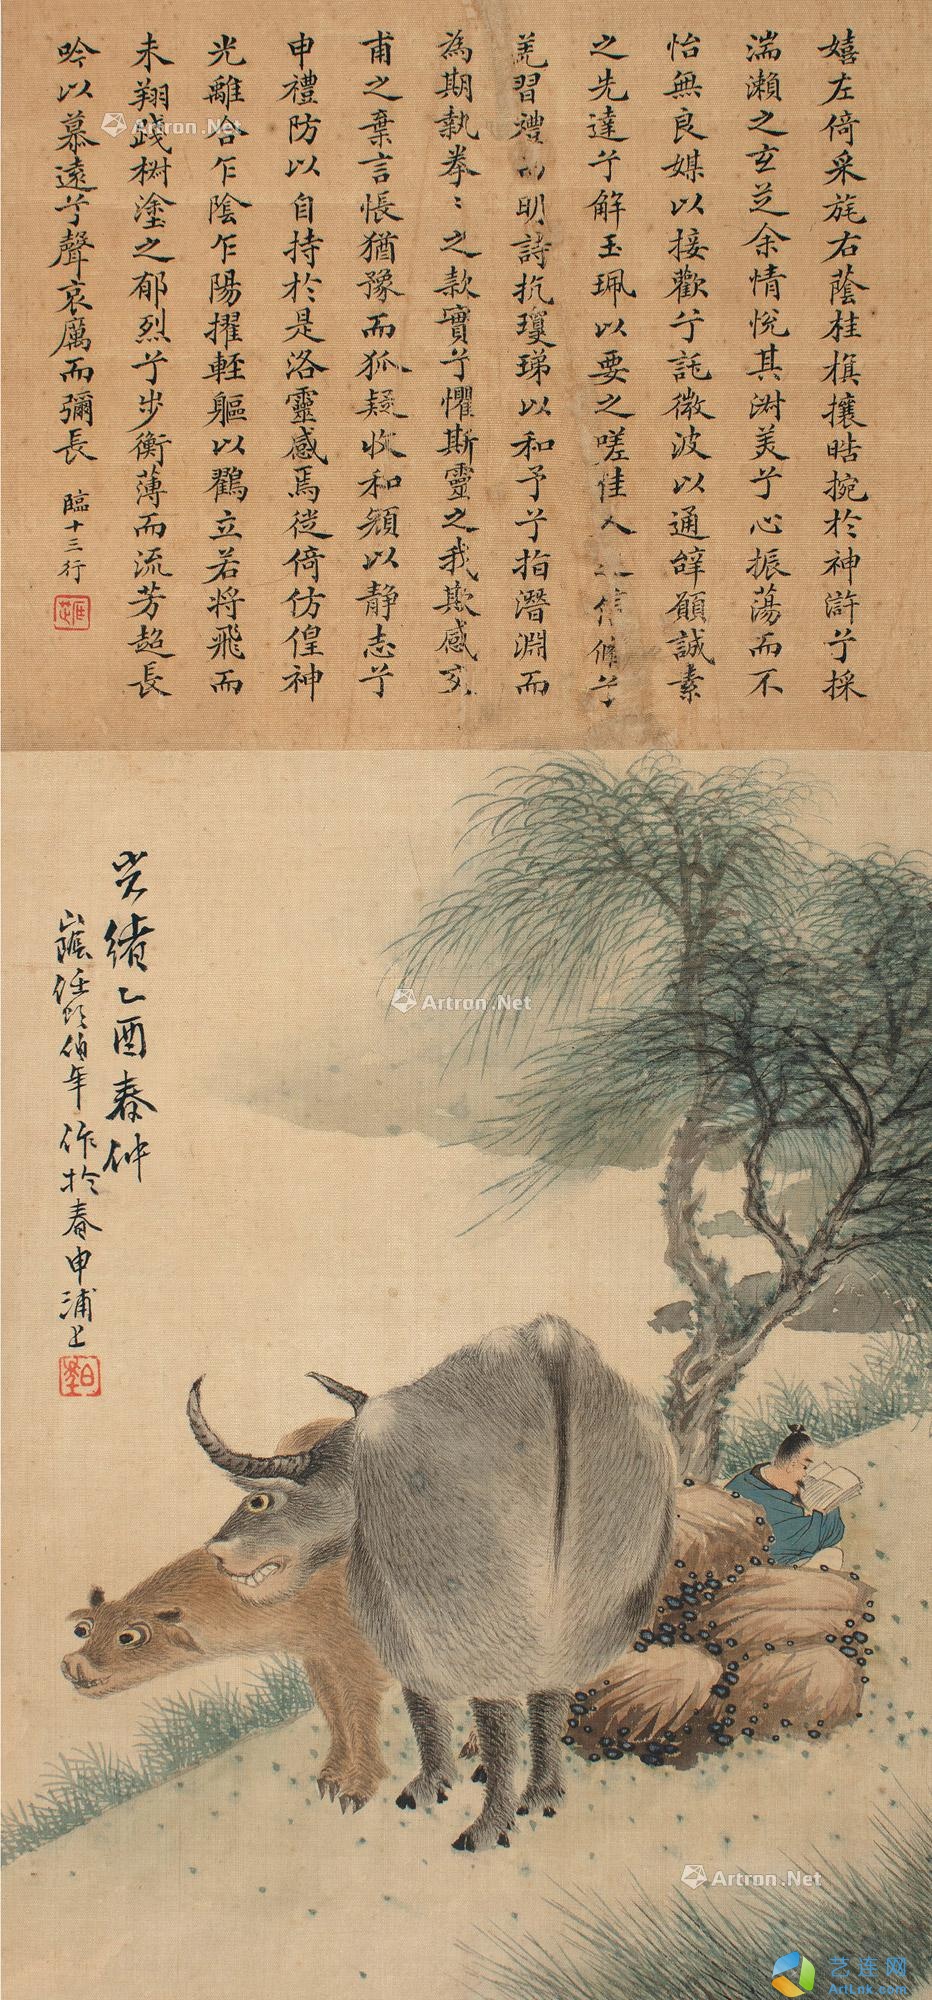 嬉左倚采旄右蔭桂旗攘晧捥於神滸兮採
湍瀨之玄芝余情悅其淑美兮心振蕩而不
怡無良媒以接歡兮託微波以通辭願誠素
之先達兮解玉珮以要之嗟佳人之信脩兮
羌習禮而明詩抗瓊珶以和予兮指潛淵而
為期執拳〻之款實兮懼斯靈之我欺感交
甫之棄言悵猶豫而狐疑收和顏以靜志兮
申禮防以自持於是洛靈感焉徙倚仿偟神
光離合乍陰乍陽擢輊軀以鶴立若將飛而
未翔踐椒塗之郁烈兮步衡薄而流芳超長
吟以慕遠兮聲哀厲而彌長 臨十三行
光緒乙酉春仲
山陰任頤伯年作於春申浦上
Artron.Net
Artron.Net
Artron.Net
艺连网
ArtLnk.com